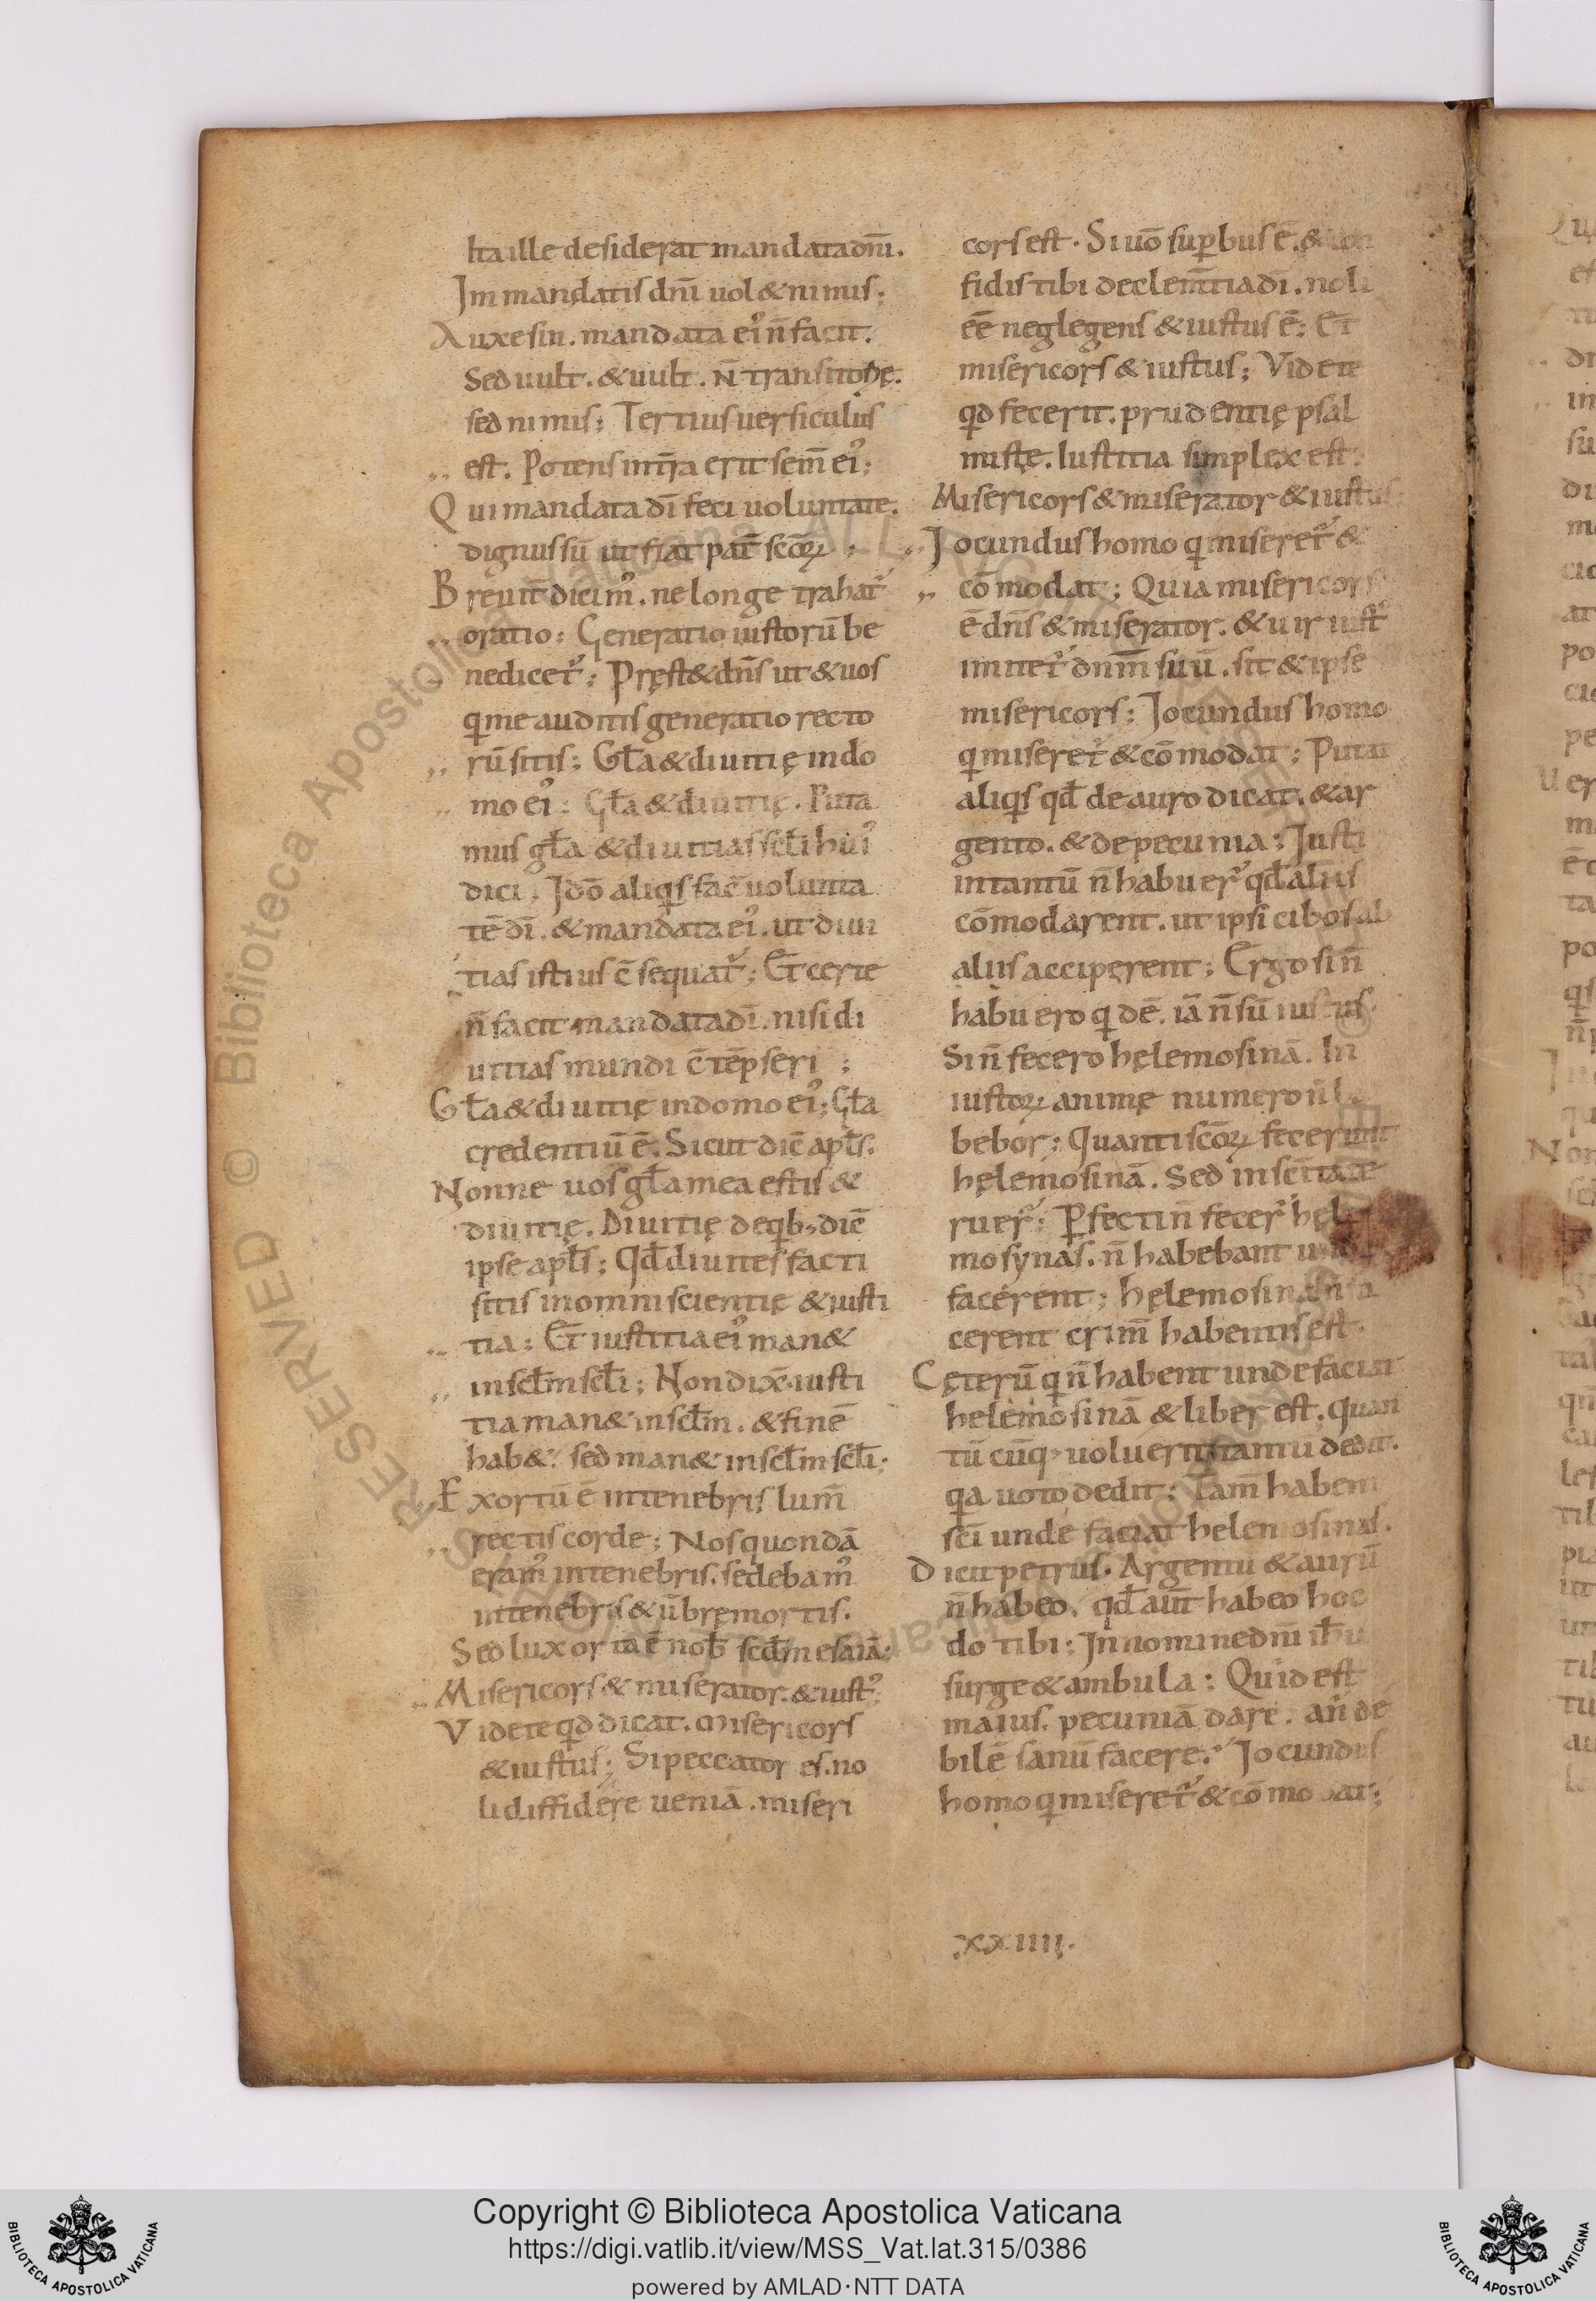 Ita ille desiderat mandata dn̄i.
Im mandatis dn̄i uol& nimis;
Auxesin. mandata ei᾽ n̄ facit.
Sed uult. & uult. N̄ transitorie.
sed nimis; Tertius uersiculus
est. Potens int̄ra erit sem̄ ei᾽;
Qui mandata dī feci uoluntate.
dignus sū ut fiat pat̄ sc̄oꝝ;
Breuit̄ dicim᾽. ne longe trahat᾽
oratio; Generatio iustorū be
nedicet᾽; Pręst& dn̄s ut & uos
qi me auditis generatio recto
rū sitis; Gl̄a & diuitię in do
mo ei᾽; Gl̄a & diuitię. Puta
mus gl̄a & diuitias scl̄i hui᾽
dici. Idō aliqis fac̄ uolunta
tē dī. & mandata ei᾽. ut diui
tias istius c̄sequat᾽; Et certe
n̄ facit mandata dī. nisi di
uitias mundi c̄tēpseri;
Gl̄a & diuitię in domo ei᾽; Gl̄a
credentiū ē. Sicut dic̄ apl̄s.
Nonne uos gl̄a mea estis &
diuitię. Diuitię de qib; dic̄
ipse apl̄s; Qd̄ diuites facti
sitis in omni scientię & iusti
tia; Et iustitia ei᾽ man&
in scl̄m scl̄i; Non dix̄. iusti
tia man& in scl̄m. & finē
hab&; sed man& in scl̄m scl̄i;
Exortū ē in tenebris lum̄
rectis corde; Nos quondā
eram᾽ in tenebris. sedebam᾽
in tenebris & ūbrę mortis.
Sed lux orta ē nob̄ scd̄m esaiā;
Misericors & miserator. & iust᾽.
Videte qid dicat. Misericors
& iustus; Si peccator es. no
li diffidere ueniā. miseri
cors est. Si uō supbus ē. & con
fidis tibi de clem̄tia dī. noli
eē neglegens & iustus ē; Et
misericors & iustus; Videte
qid fecerit. prudentię psal
mistę. Iustitia simplex est;
Misericors & miserator & iustus;
Jocundus homo qi miseret᾽ &
cōmodat; Quia misericors
ē dn̄s & miserator. & uir iust᾽
imitet᾽ dnm̄ suū. sit & ipse
misericors; Jocundus homo
qi miseret᾽ & cōmodat; Putat
aliqis qd̄ de auro dicat. & ar
gento. & de pecunia; Justi
in tantū n̄ habuer᾽ qd̄ aliis
cōmodarent. ut ipsi cibos ab
aliis acciperent; Ergo si n̄
habuero qi dē. iā n̄ sū iustus.
Si n̄ fecero hęlemosinā. In
iustoꝝ animę numero n̄ ha
bebor; Quanti sc̄oꝝ fecerunt
hęlemosinā. Sed in sc̄titate
ruer᾽; Pfecti n̄ fecer᾽ hęle
mosynas. n̄ habebant unde
facerent; hęlemosinā si n̄ fa
cerent crim̄ habentis est.
Cęterū qi n̄ habent unde faciant
helemosinā & liber est. Quan
tū cūq; uoluerit tantū dedit.
qia uoto dedit; Tam̄ habent
sc̄i unde faciat helemosinas.
Dicit petrus. Argentū & aurū
n̄ habeo. qd̄ aut̄ habeo hoc
do tibi; In nomine dn̄i ih̄u
surge & ambula; Quid est
maius. pecuniā dare. an̄ de
bilē sanū facere. Jocundus
homo qi miseret᾽ & cōmodat;
.xxiiii.
RESERVED © Biblioteca Apostolica Vaticana
Copyright © Biblioteca Apostolica Vaticana
https://digi.vatlib.it/view/MSS_Vat.lat.315/0386
powered by AMLAD·NTT DATA
BIBLIOTECA APOSTOLICA VATICANA
BIBLIOTECA APOSTOLICA VATICANA